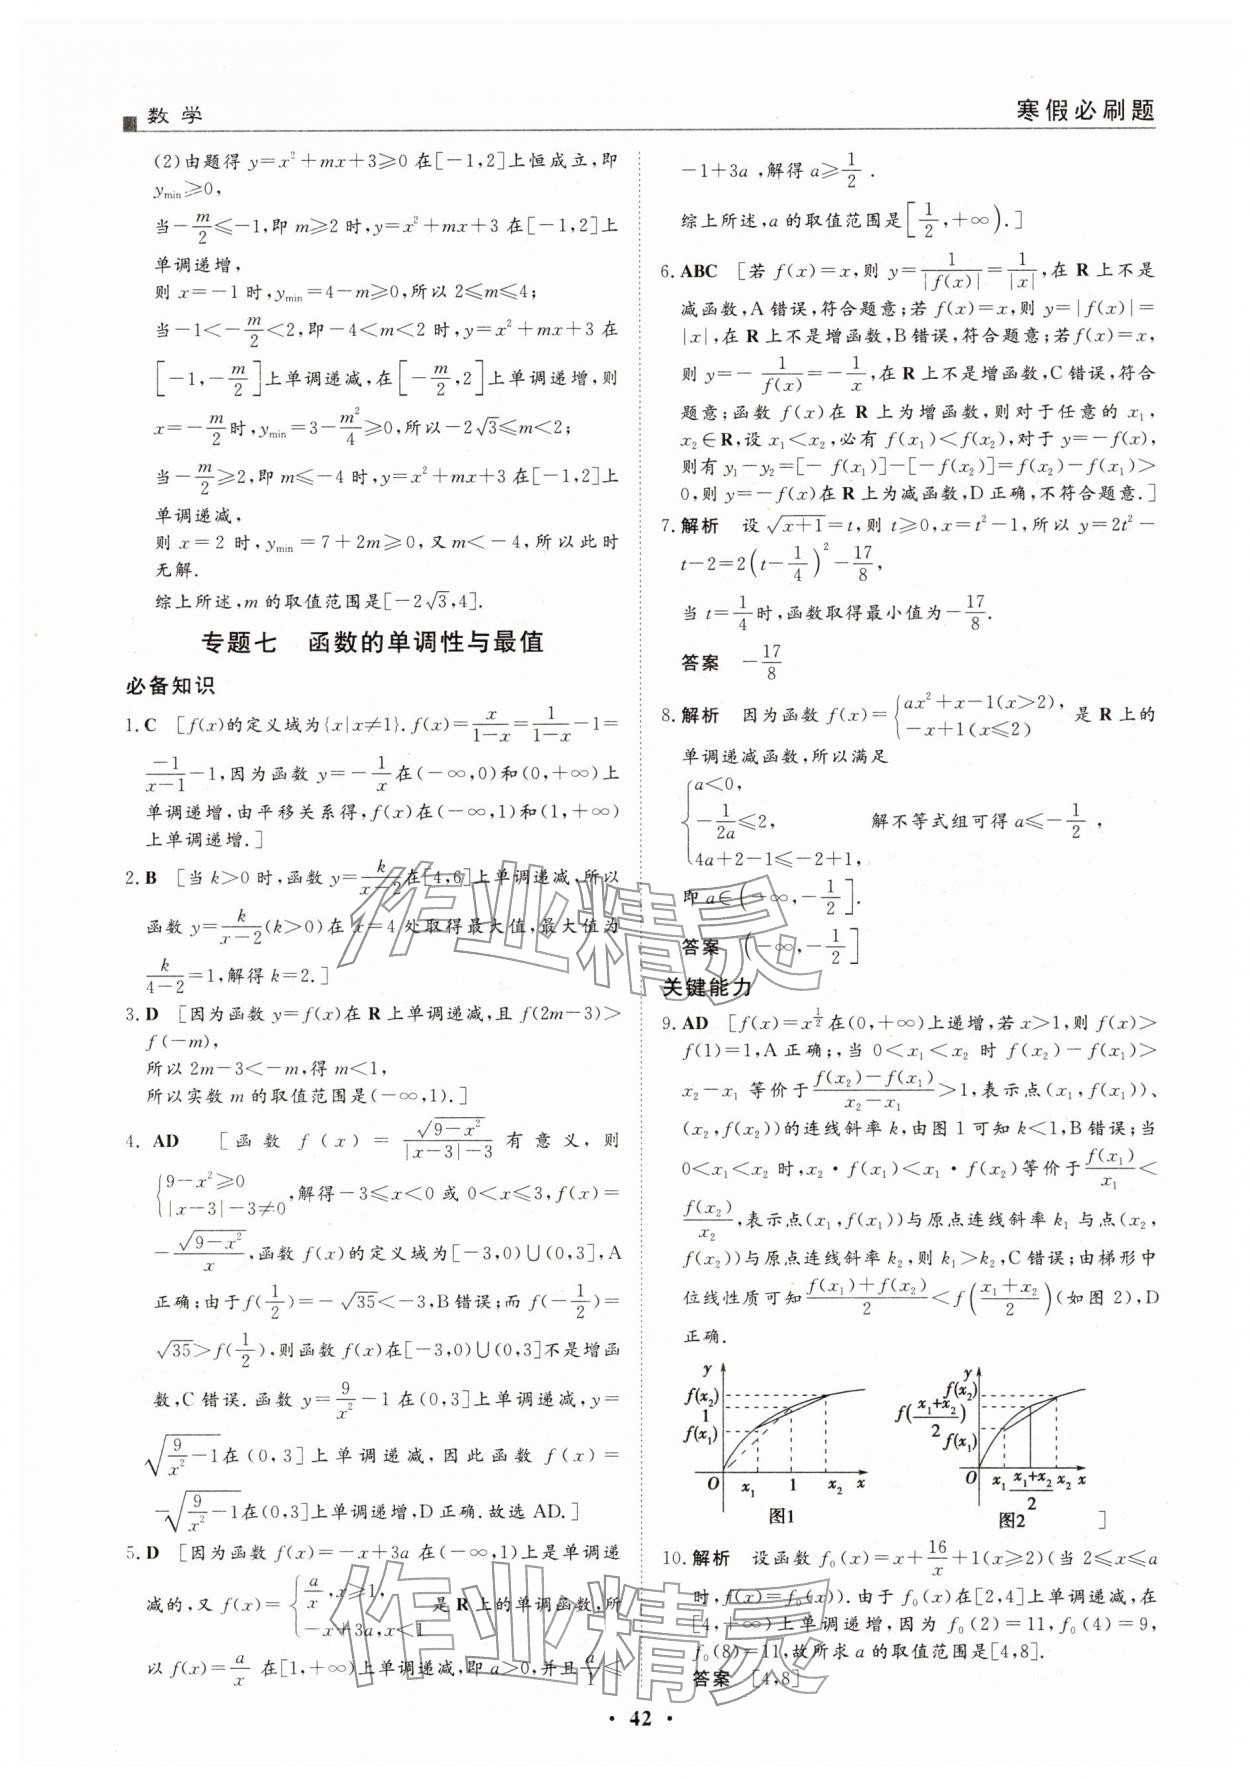 数学
寒假必刷题
(2)由题得 y=x²+mx+3≥0 在[-1,2]上恒成立,即
y_min≥0,
当-m/2≤-1,即 m≥2 时,y=x²+mx+3 在[-1,2]上
单调递增,
则 x=-1 时,y_min=4-m≥0,所以 2≤m≤4;
当-1<-m/2<2,即-4<m<2 时,y=x²+mx+3 在
[-1,-m/2]上单调递减,在[-m/2,2]上单调递增,则
x=-m/2时,y_min=3-m²/4≥0,所以-2√3≤m<2;
当-m/2≥2,即 m≤-4 时,y=x²+mx+3 在[-1,2]上
单调递减,
则 x=2 时,y_min=7+2m≥0,又m<-4,所以此时
无解.
综上所述,m 的取值范围是[-2√3,4].
专题七 函数的单调性与最值
必备知识
1.C [f(x)的定义域为{x|x≠1}.f(x)=x/(1-x)=1/(1-x)-1=
-1/(x-1)-1,因为函数 y=-1/x在(-∞,0)和(0,+∞)上
单调递增,由平移关系得,f(x)在(-∞,1)和(1,+∞)
上单调递增.]
2.B [当 k>0 时,函数 y=k/(x-2)在[4,6]上单调递减,所以
函数 y=k/(x-2)(k>0)在 x=4 处取得最大值,最大值为
k/(4-2)=1,解得 k=2.]
3.D [因为函数 y=f(x)在 R 上单调递减,且 f(2m-3)>
f(-m),
所以 2m-3<-m,得 m<1,
所以实数 m 的取值范围是(-∞,1).]
4. AD [函数 f(x)=√(9-x²)/(|x-3|-3) 有意义,则
{9-x²≥0
|x-3|-3≠0,解得-3≤x<0 或 0<x≤3,f(x)=
-√(9-x²)/x,函数 f(x)的定义域为[-3,0)∪(0,3],A
正确;由于f(1/2)=-√35<-3,B错误;而 f(-1/2)=
√35>f(1/2),则函数 f(x)在[-3,0)∪(0,3]不是增函
数,C错误.函数 y=9/x²-1在(0,3]上单调递减,y=
√(9/x²-1)在(0,3]上单调递减,因此函数 f(x)=
-√(9/x²-1)在(0,3]上单调递增,D正确.故选 AD.]
5.D [因为函数 f(x)=-x+3a 在(-∞,1)上是单调递
减的,又 f(x)={a/x,x≥1,
-x+3a,x<1 是 R 上的单调函数,所
以 f(x)=a/x 在[1,+∞)上单调递减,即 a>0,并且 a/1≤
-1+3a,解得 a≥1/2.
综上所述,a 的取值范围是[1/2,+∞).]
6.ABC [若 f(x)=x,则 y=1/|f(x)|=1/|x|,在 R 上不是
减函数,A错误,符合题意;若 f(x)=x,则 y=|f(x)|=
|x|,在 R 上不是增函数,B错误,符合题意;若f(x)=x,
则 y=-1/f(x)=-1/x,在 R 上不是增函数,C错误,符合
题意;函数 f(x)在 R 上为增函数,则对于任意的 x₁,
x₂∈R,设 x₁<x₂,必有 f(x₁)<f(x₂),对于 y=-f(x),
则有 y₁-y₂=[-f(x₁)]-[-f(x₂)]=f(x₂)-f(x₁)>
0,则 y=-f(x)在 R 上为减函数,D正确,不符合题意.]
7.解析 设√(x+1)=t,则 t≥0,x=t²-1,所以 y=2t²-
t-2=2(t-1/4)²-17/8,
当 t=1/4时,函数取得最小值为-17/8.
答案 -17/8
8.解析 因为函数 f(x)={ax²+x-1(x>2),
-x+1(x≤2) 是 R 上的
单调递减函数,所以满足
{a<0,
-1/2a≤2, 解不等式组可得 a≤-1/2,
4a+2-1≤-2+1,
即 a∈(-∞,-1/2].
答案 (-∞,-1/2]
关键能力
9.AD [f(x)=x^(1/2)在(0,+∞)上递增,若 x>1,则 f(x)>
f(1)=1,A 正确;,当 0<x₁<x₂ 时 f(x₂)-f(x₁)>
x₂-x₁ 等价于(f(x₂)-f(x₁))/(x₂-x₁)>1,表示点(x₁,f(x₁))、
(x₂,f(x₂))的连线斜率 k,由图 1 可知 k<1,B错误;当
0<x₁<x₂ 时,x₂·f(x₁)<x₁·f(x₂)等价于f(x₁)/x₁<
f(x₂)/x₂,表示点(x₁,f(x₁))与原点连线斜率 k₁ 与点(x₂,
f(x₂))与原点连线斜率 k₂,则 k₁>k₂,C错误;由梯形中
位线性质可知(f(x₁)+f(x₂))/2<f((x₁+x₂)/2)(如图 2),D
正确.
y f(x₂) 1 f(x₁) O x₁ 1 x₂ x
图1
y f(x₂) f((x₁+x₂)/2) f(x₁) O x₁ (x₁+x₂)/2 x₂ x
图2 ]
10.解析 设函数 f₀(x)=x+16/x+1(x≥2)(当 2≤x≤a
时,f(x)=f₀(x)).由于 f₀(x)在[2,4]上单调递减,在
[4,+∞)上单调递增,因为 f₀(2)=11,f₀(4)=9,
f₀(8)=11,故所求 a 的取值范围是[4,8].
答案 [4,8]
作业精灵
作业精灵
· 42 ·